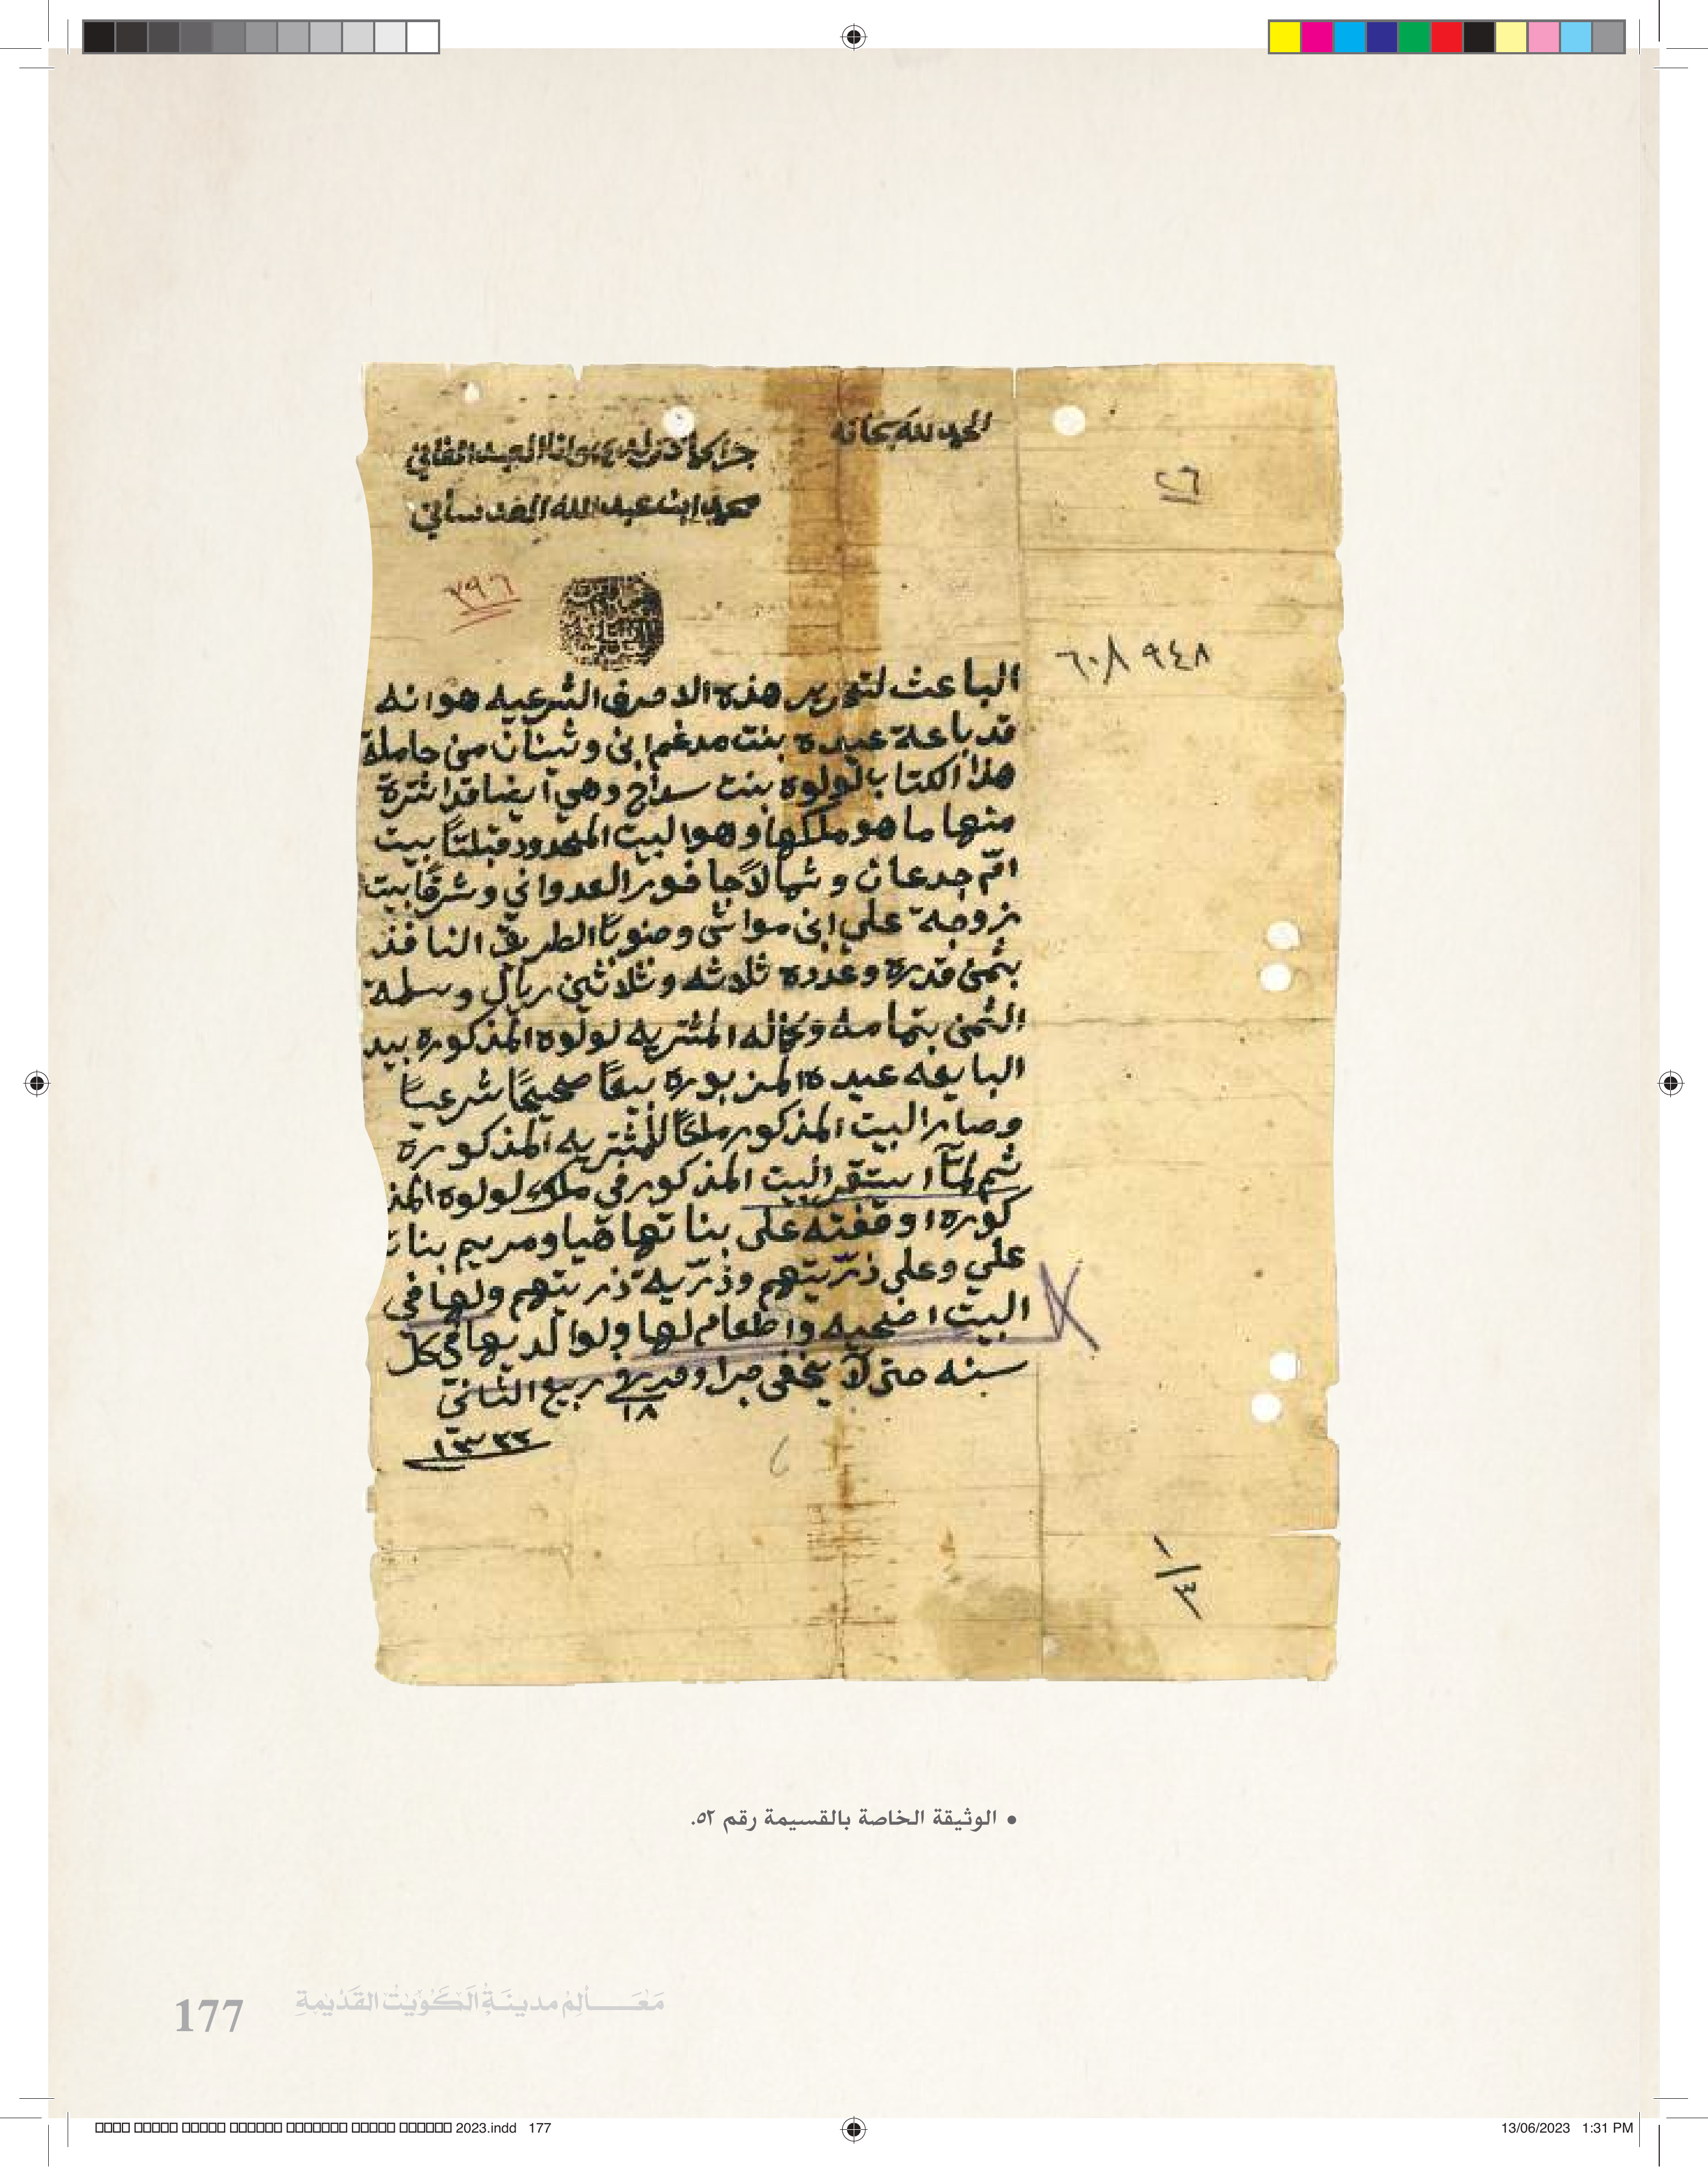 الحمد لله سبحانه
جرا كما ذكر لدي وانا العبد الفاني
محمد ابن عبد الله العدساني
٢٦
٣٩٦
٩٤٨ ٦٠٨
الباعث لتحرير هذه الاحرف الشرعيه هو انه
قد باعة عبيده بنت مدغم ابن وثينان من حاملة
هذا الكتاب لولوة بنت سداح وهي ايضا قد اشترة
منها ما هو ملكها وهو البيت المحدود قبلتاً بيت
امّ جدعان وشمالاً جا فور العدواني وشرقاً بيت
زوجة علي ابن مواش وجنوباً الطريق النافذ
بثمن قدره وعدده ثلاثه وثلاثين ريال وسلمة
الثمن بتمامه وكماله المشتريه لولوة المذكوره بيد
البايعه عبيده المزبوره بيعاً صحيحاً شرعياً
وصار البيت المذكور ملكاً للمشتريه المذكوره
ثم لمّا استقر البيت المذكور في ملك لولوة المذ
كوره اوقفته على بناتها هيا ومريم بنات
علي وعلى ذرّيتهم وذرّية ذريتهم ولها في
البيت اضحيه واطعام لها ولوالديها في كل
سنه حتى لا يخفى جرا وحرر في ١٨ ربيع الثاني
١٣٢٢
• الوثيقة الخاصة بالقسيمة رقم ٥٢.
177 مَعَـــالِمُ مدينَـةِ الكُوَيْتْ القَدْيْمةِ
2023.indd 177
13/06/2023 1:31 PM